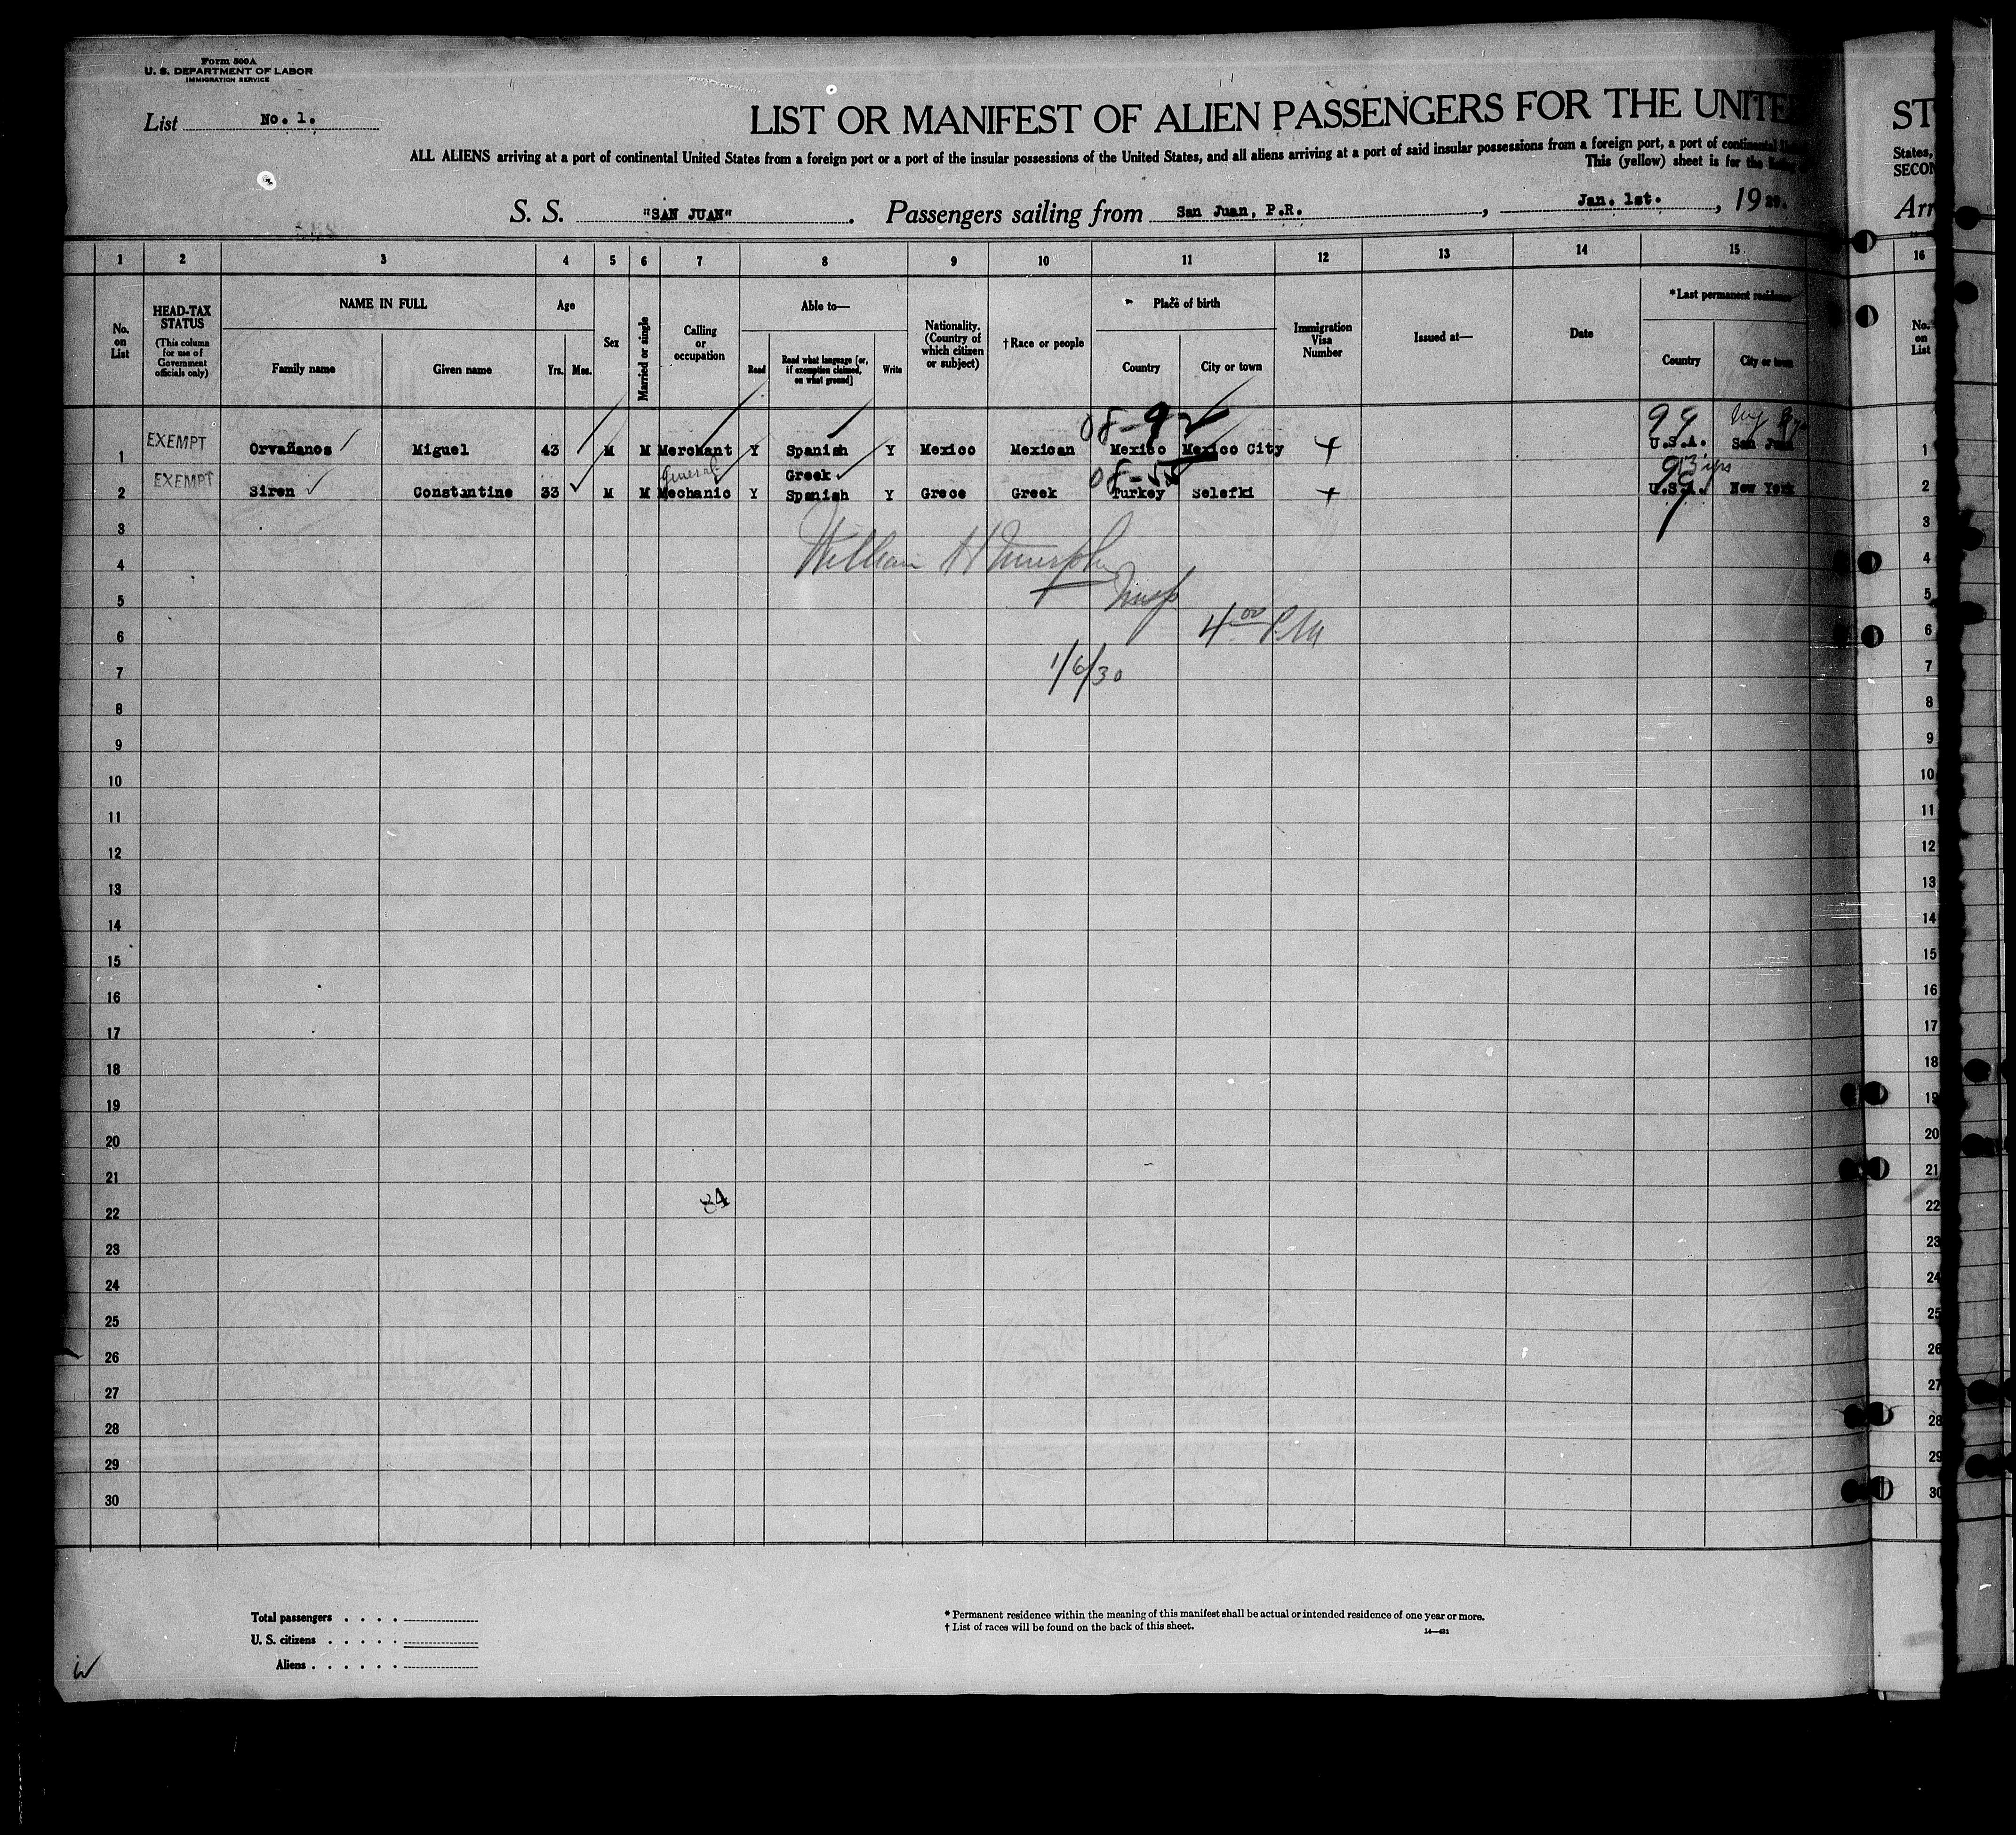 Form 500A
U. S. DEPARTMENT OF LABOR
IMMIGRATION SERVICE
List No. 1.
LIST OR MANIFEST OF ALIEN PASSENGERS FOR THE UNITE
ST
ALL ALIENS arriving at a port of continental United States from a foreign port or a port of the insular possessions of the United States, and all aliens arriving at a port of said insular possessions from a foreign port, a port of continental
States,
This (yellow) sheet is for the
SECON
S. S. "SAN JUAN". Passengers sailing from San Juan, P.R., Jan. 1st., 1929.
Arr
1 2 3 4 5 6 7 8 9 10 11 12 13 14 15 16
No. on List
HEAD-TAX STATUS
(This column for use of Government officials only)
NAME IN FULL
Family name
Given name
Age
Yrs. Mos.
Sex
Married or single
Calling or occupation
Able to—
Read
Read what language [or, if exemption claimed, on what ground]
Write
Nationality. (Country of which citizen or subject)
† Race or people
Place of birth
Country
City or town
Immigration Visa Number
Issued at—
Date
*Last permanent residence
Country
City or town
No. on List
08-92 99
1 EXEMPT Orvañanos Miguel 43 M M Merchant Y Spanish Y Mexico Mexican Mexico Mexico City U.S.A. San Juan 1
General Greek 08-55
2 EXEMPT Siren Constantine 33 M M Mechanic Y Spanish Y Grece Greek Turkey Selefki U.S.A. New York 2
3 3
William H Murphy
4 4
Insp
5 5
4 00 P.M
6 6
1/6/30
7 7
8 8
9 9
10 10
11 11
12 12
13 13
14 14
15 15
16 16
17 17
18 18
19 19
20 20
21 21
84
22 22
23 23
24 24
25 25
26 26
27 27
28 28
29 29
30 30
Total passengers . . . .
U. S. citizens . . . . .
Aliens . . . . . .
* Permanent residence within the meaning of this manifest shall be actual or intended residence of one year or more.
† List of races will be found on the back of this sheet.
14—431